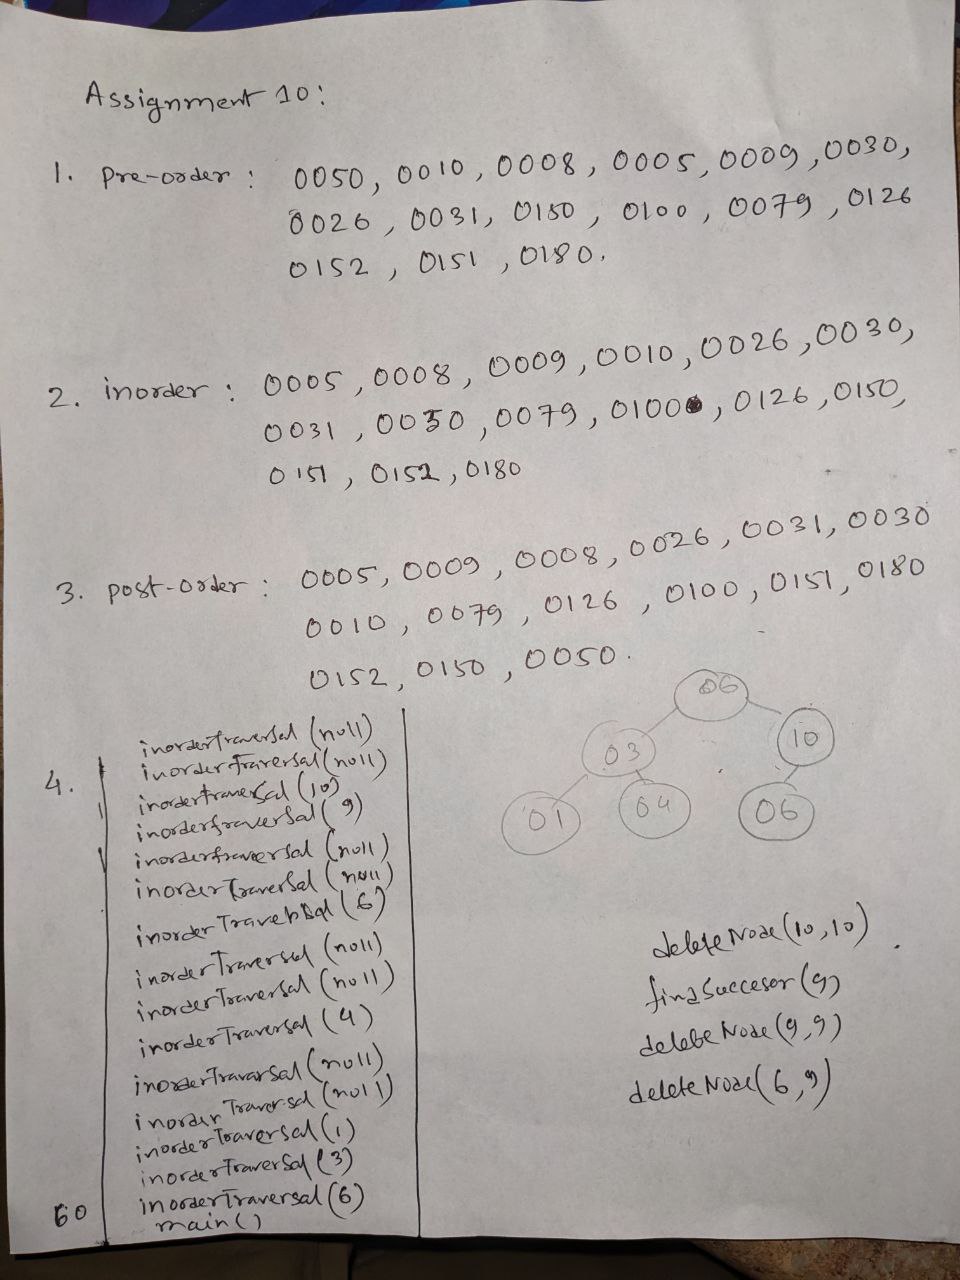 Assignment 10:
1. Pre-order : 0050, 0010, 0008, 0005, 0009, 0030,
0026, 0031, 0150, 0100, 0079, 0126
0152, 0151, 0180.
2. inorder : 0005, 0008, 0009, 0010, 0026, 0030,
0031, 0050, 0079, 0100, 0126, 0150,
0151, 0152, 0180
3. post-order : 0005, 0009, 0008, 0026, 0031, 0030
0010, 0079, 0126, 0100, 0151, 0180
0152, 0150, 0050.
06
03 10
01 04 06
4.
inordertraversal (null)
inordertraversal (null)
inordertraversal (10)
inordertraversal (9)
inordertraversal (null)
inorderTraversal (null)
inorderTraversal (6)
inorderTraversal (null)
inorderTraversal (null)
inorderTraversal (4)
inorderTravarsal (null)
inorderTraversal (null)
inorderTraversal (1)
inorderTraversal (3)
60 inorderTraversal (6)
main()
deleteNode(10,10).
findSuccesor(9)
deleteNode(9,9)
deleteNode(6,9)